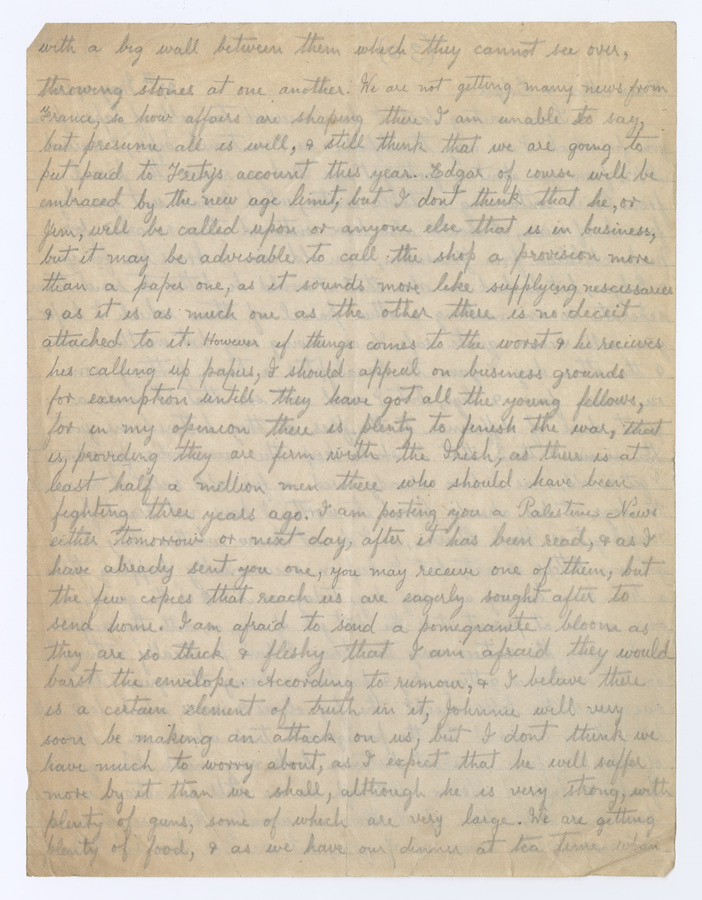 with a big wall between them which they cannot see over,
throwing stones at one another. We are not getting many news from
France, so how affairs are shaping there I am unable to say,
but presume all is well, & still think that we are going to
put paid to Fritzs account this year. Edgar of course will be
embraced by the new age limit, but I dont think that he, or
Jim, will be called upon or anyone else that is in business,
but it may be advisable to call the shop a provision more
than a paper one, as it sounds more like supplying nescissaries
& as it is as much one as the other there is no deceit
attached to it. However if things comes to the worst & he receives
his calling up papers, I should appeal on business grounds
for exemption untill they have got all the young fellows,
for in my opinion there is plenty to finish the war, that
is, providing they are firm with the Irish, as there is at
least half a million men there who should have been
fighting three years ago. I am posting you a Palestine News
either tomorrow or next day, after it has been read, & as I
have already sent you one, you may receive one of them, but
the few copies that reach us are eagerly sought after to
send home. I am afraid to send a pomegranite bloom as
they are so thick & fleshy that I am afraid they would
burst the envilope. According to rumour, & I believe there
is a certain element of truth in it, Johnnie will very
soon be making an attack on us, but I dont think we
have much to worry about, as I expect that he will suffer
more by it than we shall, although he is very strong, with
plenty of guns, some of which are very large. We are getting
plenty of food, & as we have our dinner at tea time when